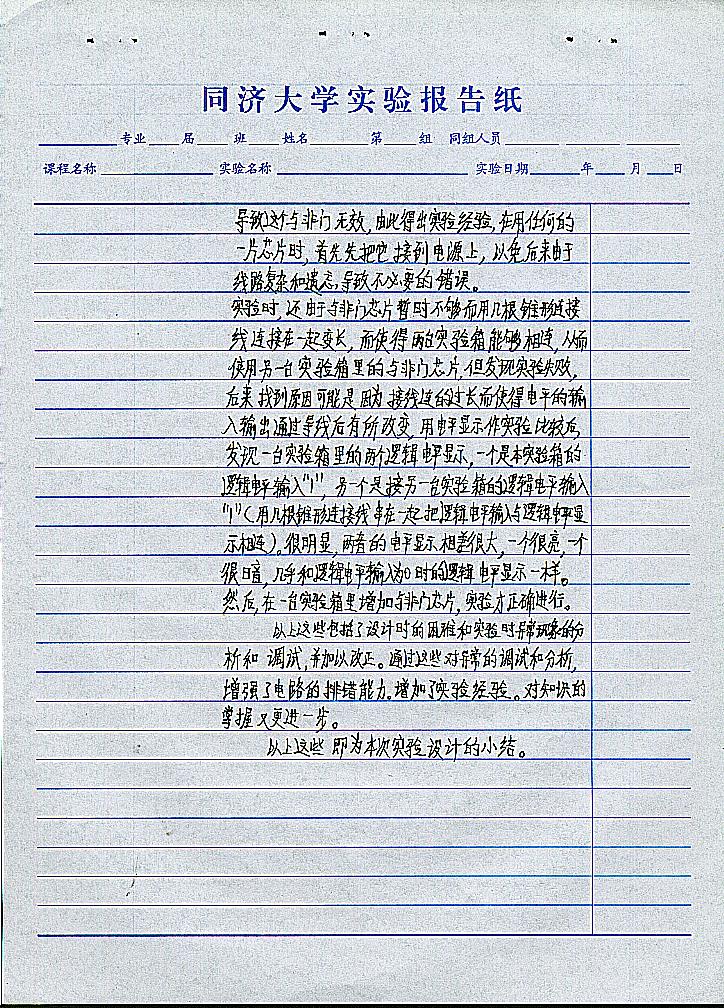 同济大学实验报告纸
专业 届 班 姓名 第 组 同组人员
课程名称 实验名称 实验日期 年 月 日
导致这个与非门无效,由此得出实验经验,在用任何的
一片芯片时,首先先把它接到电源上,以免后来由于
线路复杂和遗忘,导致不必要的错误。
实验时,还由于与非门芯片暂时不够而用几根锥形连接
线连接在一起变长,而使得两台实验箱能够相连,从而
使用另一台实验箱里的与非门芯片,但发现实验失败,
后来找到原因可能是因为接线连的过长而使得电平的输
入输出通过导线后有所改变,用电平显示作实验比较后,
发现一台实验箱里的两个逻辑电平显示,一个是本实验箱的
逻辑电平输入"1",另一个是接另一台实验箱的逻辑电平输入
"1"(用几根锥形连接线串在一起把逻辑电平输入与逻辑电平显
示相连)。很明显,两者的电平显示相差很大,一个很亮,一个
很暗,几乎和逻辑电平输入为0时的逻辑电平显示一样。
然后,在一台实验箱里增加与非门芯片,实验才正确进行。
以上这些包括了设计时的困难和实验时异常现象的分
析和调试,并加以改正。通过这些对异常的调试和分析,
增强了电路的排错能力。增加了实验经验。对知识的
掌握又更进一步。
以上这些即为本次实验设计的小结。